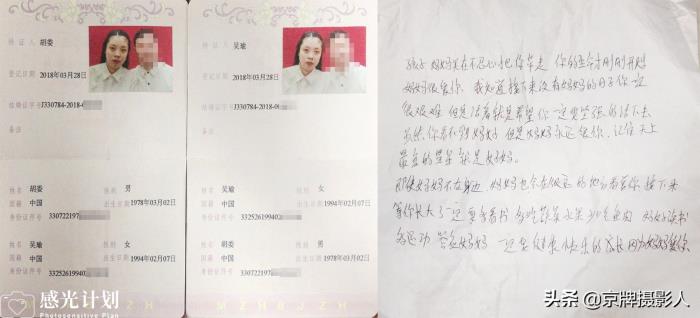 持证人 胡委
登记日期 2018年03月28日
结婚证字号 J330784-2018-0
备注
姓名 胡委 性别 男
国籍 中国 出生日期 1978年03月02日
身份证件号 330722197
姓名 吴瑜 性别 女
国籍 中国 出生日期 1994年02月07日
身份证件号 332526199402
感光计划
Photosensitive Plan
持证人 吴瑜
登记日期 2018年03月28日
结婚证字号 J330784-2018-00
备注
姓名 吴瑜 性别 女
国籍 中国 出生日期 1994年02月07日
身份证件号 332526199402
姓名 胡委 性别 男
国籍 中国 出生日期 1978年03月02日
身份证件号 330722197
孩子 妈妈实在不忍心把你带走 你的生命刚刚开始
妈妈很爱你，我知道接下来没有妈妈的日子你一定
很艰难 但是活着就是希望 你一定要坚强的活下去
虽然你看不到妈妈 但是妈妈永远爱你，记住天上
最亮的星星就是妈妈。
即使妈妈不在身边 妈妈也会在很远的地方看着你 接下来
等你长大了一定要多看书 多吃蔬菜水果 少吃鱼肉 好好读书
多运动 答应妈妈 一定要健康快乐的成长 因为妈妈爱你
头条 @京牌摄影人